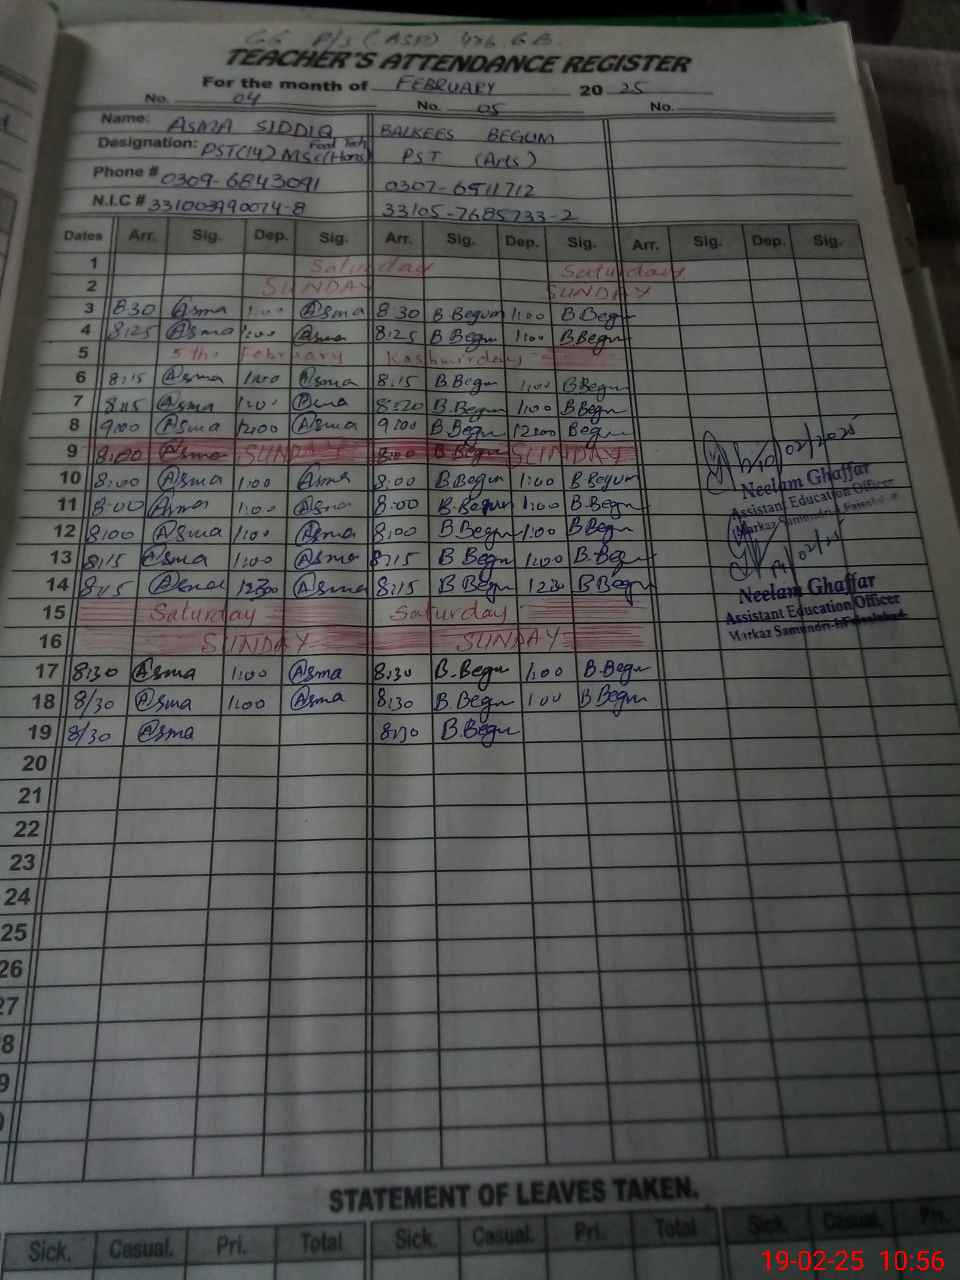 P/S (ASP) 426 G.B.
TEACHER'S ATTENDANCE REGISTER
For the month of FEBRUARY 20 25
No. 04 No. 05 No.
Name: ASMA SIDDIQ BALKEES BEGUM
Designation: PST(14) MSc(Hons) Food Tech PST (Arts)
Phone # 0309-6843091 0307-6511712
N.I.C # 331003990074-8 33105-7685733-2
Dates Arr. Sig. Dep. Sig. Arr. Sig. Dep. Sig. Arr. Sig. Dep. Sig.
1 Saturday Saturday
2 SUNDAY SUNDAY
3 8:30 Asma 1:00 Asma 8:30 B.Begum 1:00 B.Begum
4 8:25 Asma 1:00 Asma 8:25 B.Begum 1:00 B.Begum
5 5th February Kashmirday
6 8:15 Asma 1:00 Asma 8:15 B.Begum 1:00 B.Begum
7 8:15 Asma 1:00 Asma 8:20 B.Begum 1:00 B.Begum
8 9:00 Asma 12:00 Asma 9:00 B.Begum 12:00 Begum
9 8:00 Asma SUNDAY 8:00 B.Begum SUNDAY
10 8:00 Asma 1:00 Asma 8:00 B.Begum 1:00 B.Begum
11 8:00 Asma 1:00 Asma 8:00 B.Begum 1:00 B.Begum
12 8:00 Asma 1:00 Asma 8:00 B.Begum 1:00 B.Begum
13 8:15 Asma 1:00 Asma 8:15 B.Begum 1:00 B.Begum
14 8:15 Asma 12:30 Asma 8:15 B.Begum 12:30 B.Begum
15 Saturday Saturday
16 SUNDAY SUNDAY
17 8:30 Asma 1:00 Asma 8:30 B.Begum 1:00 B.Begum
18 8/30 Asma 1:00 Asma 8:30 B.Begum 1:00 B.Begum
19 8/30 Asma 8:30 B.Begum
20
21
22
23
24
25
26
27
8
9
02/2025
Neelam Ghaffar
Assistant Education Officer
Markaz Samundri-I, Faisalabad
14/02/25
Neelam Ghaffar
Assistant Education Officer
Markaz Samundri-I, Faisalabad
STATEMENT OF LEAVES TAKEN.
Sick. Casual. Pri. Total Sick. Casual. Pri. Total Sick. Casual. Pri.
19-02-25 10:56